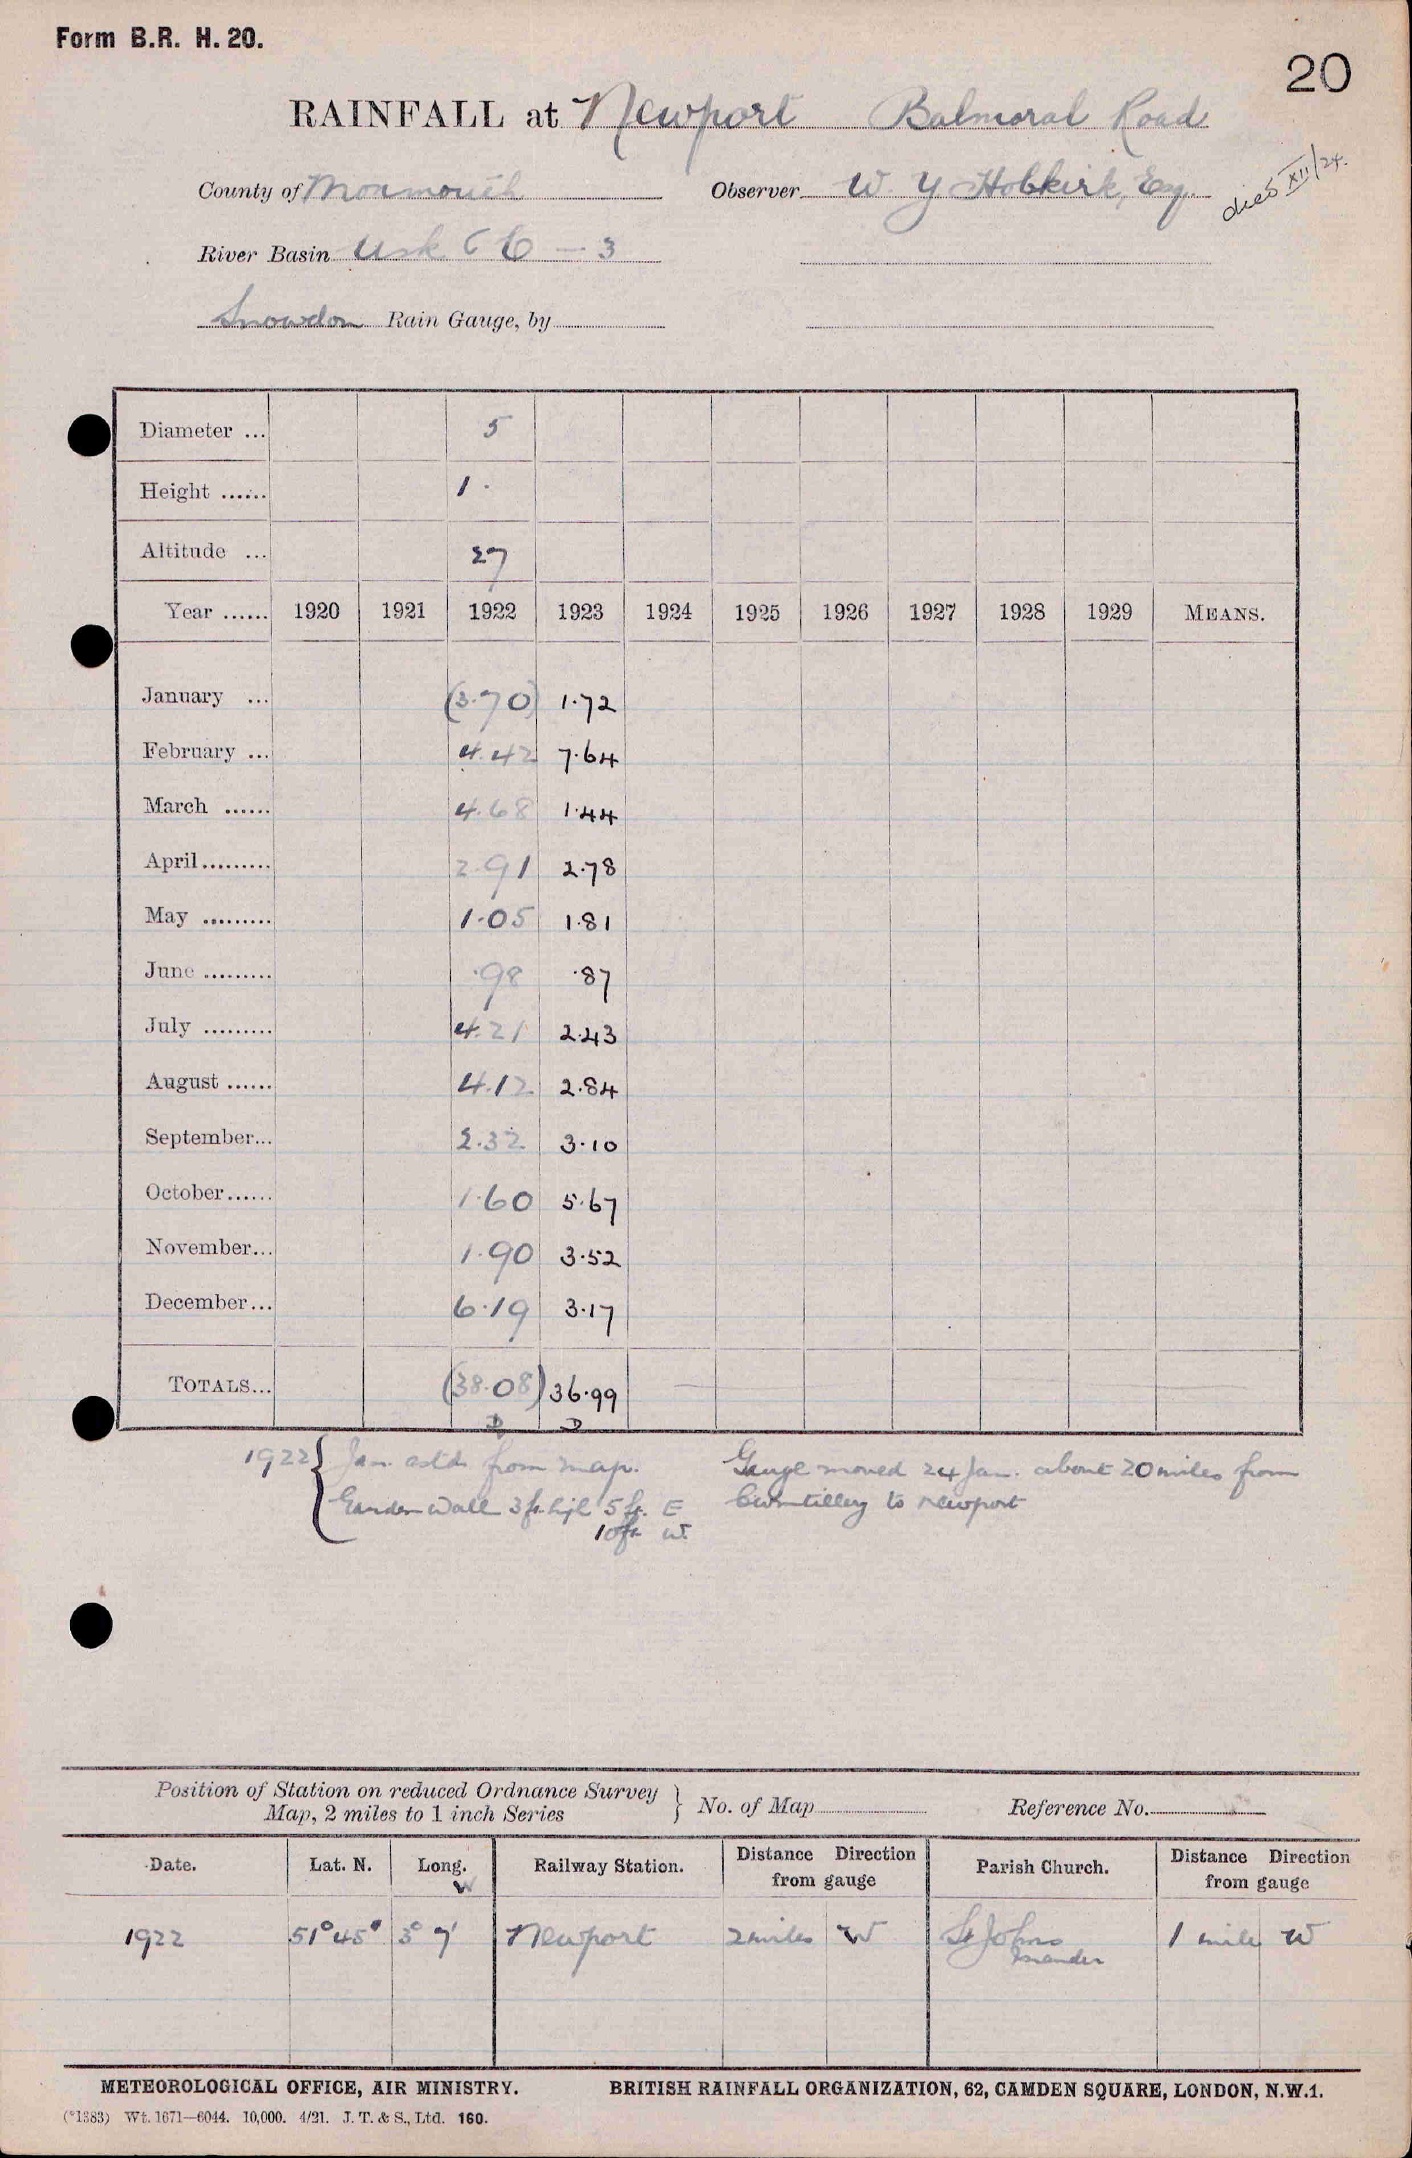 Form B.R. H. 20.
20
RAINFALL at Newport Balmoral Road
County of Monmouth Observer W. Y Hobkirk, Esq.
died XII/24.
River Basin Usk 6 C — 3
Snowdon Rain Gauge, by
Diameter ... 5
Height ...... 1 ·
Altitude ... 27
Year ...... 1920 1921 1922 1923 1924 1925 1926 1927 1928 1929 MEANS.
January ... (3.70) 1.72
February ... 4.42 7.64
March ...... 4.68 1.44
April......... 2.91 2.78
May ......... 1.05 1.81
June ......... .98 .87
July ......... 4.21 2.43
August ...... 4.12 2.84
September... 2.32 3.10
October...... 1.60 5.67
November... 1.90 3.52
December... 6.19 3.17
TOTALS... (38.08) 36.99
D D
1922 { Jan. estd. from map. Gauge moved 24 Jan. about 20 miles from
Garden Wall 3ft. high 5 ft. E Cwmtillery to Newport
10ft W.
Position of Station on reduced Ordnance Survey
Map, 2 miles to 1 inch Series } No. of Map Reference No.
Date. Lat. N. Long. W Railway Station. Distance Direction from gauge Parish Church. Distance Direction from gauge
1922 51° 45' 3° 7' Newport 2 miles W St Johns 1 mile W
Maindee
METEOROLOGICAL OFFICE, AIR MINISTRY. BRITISH RAINFALL ORGANIZATION, 62, CAMDEN SQUARE, LONDON, N.W.1.
(*1383) Wt. 1671—6044. 10,000. 4/21. J. T. & S., Ltd. 160.